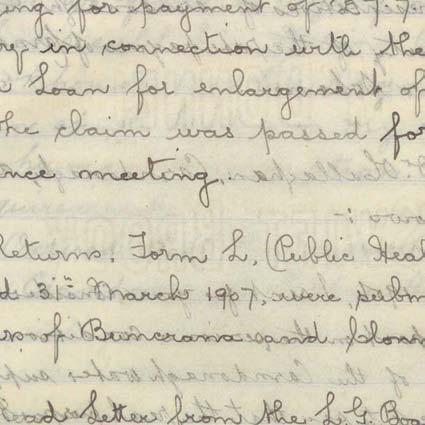 ing for payment of £7.7.
in connection with the
Loan for enlargement of
the claim was passed for
ance meeting.
Returns, Form L, (Public Heal
d 31st March 1907, were subm
ns of Buncrana and Clonm
ead Letter from the L.G. Boa